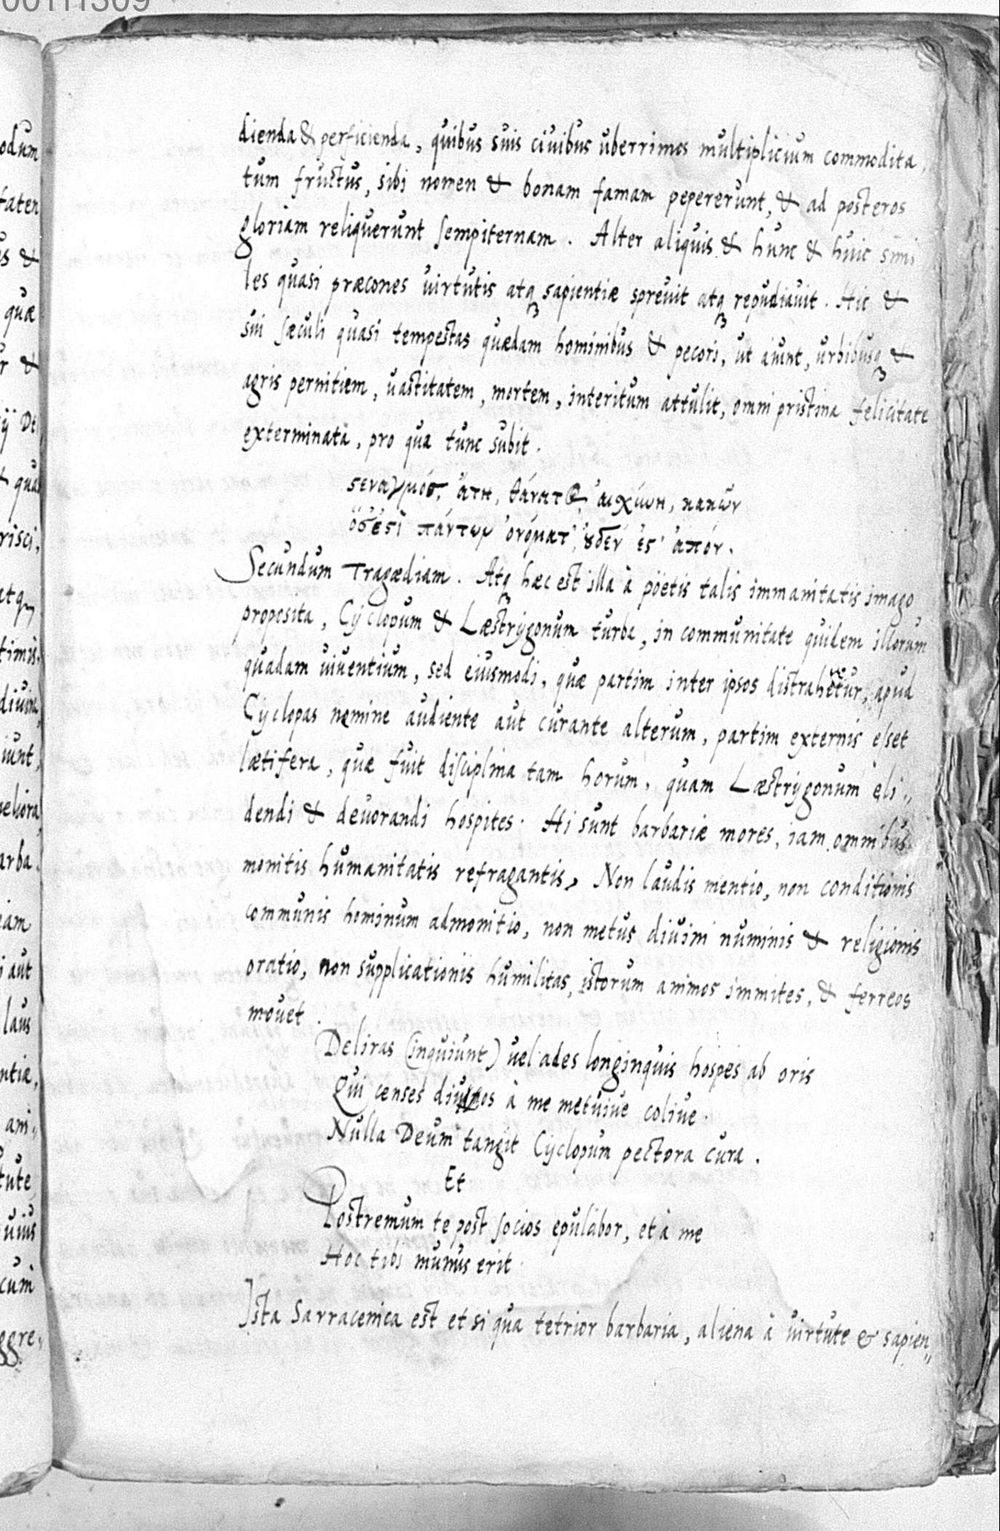 00111309
dienda & perficienda, quibus suis ciuibus uberrimos multiplicium commodita,
tum fructus, sibi nomen & bonam famam pepererunt, & ad posteros
gloriam reliquerunt sempiternam. Alter aliquis & hunc & huic simi
les quasi præcones uirtutis atq sapientiæ spreuit atq repudiauit. Hic &
sui sæculi quasi tempestas quædam hominibus & pecori, ut aiunt, urbibusq &
agris pernitiem, uastitatem, mortem, interitum attulit, omni pristina felicitate
exterminata, pro qua tunc subit.
στεναγμοσ, ἄτη, θάνατος, αισχύνη, κακῶν
ὅσ' ἐστὶ πάντων ὀνόματ', οὐδέν ἐστ' ἀπόν.
Secundum Tragædiam. Atq hæc est illa à poëtis talis immanitatis imago
proposita, Cyclopum & Læstrygonum turba, in communitate quidem illorum
quadam uiuentium, sed eiusmodi, quæ partim inter ipsos distraheretur, apud
Cyclopas nemine audiente aut curante alterum, partim externis esset
lætifera, quæ fuit disciplina tam horum, quam Læstrygonum eli,,
dendi & deuorandi hospites. Hi sunt barbariæ mores, iam omnibus
monitis humanitatis refragantis, Non laudis mentio, non conditionis
communis hominum admonitio, non metus diuini numinis & religionis
oratio, non supplicationis humilitas, istorum animos immites, & ferreos
mouet.
Deliras (inquiunt) uel ades longinquis hospes ab oris
Qui censes diuos à me metuiue coliue
Nulla Deum tangit Cyclopum pectora cura.
Et
Postremum te post socios epulabor, et à me
Hoc tibi munus erit.
Ista Sarracenica est et si qua tetrior barbaria, aliena à uirtute & sapien,,